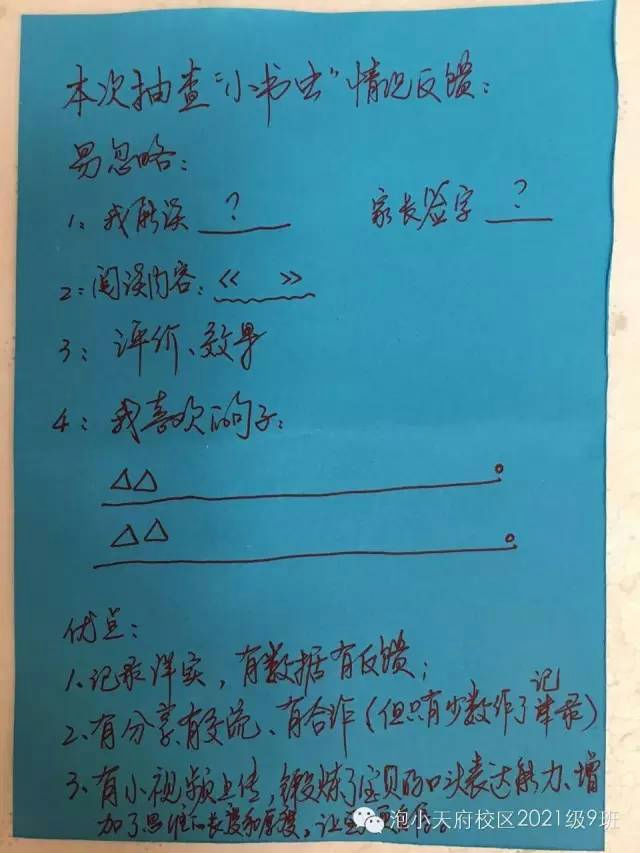 本次抽查“小书虫”情况反馈：
易忽略：
1：我能读 ？ 家长签字 ？
2：阅读内容：《 》
3：评价、效果
4：我喜欢的句子：
△△ 。
△△ 。
优点：
1、记录详实，有数据有反馈；
2、有分享、有交流、有合作（但只有少数作了记录）
3、有小视频上传，锻炼了宝贝的口头表达能力、增
加了思维的长度和厚度，让
泡小天府校区2021级9班